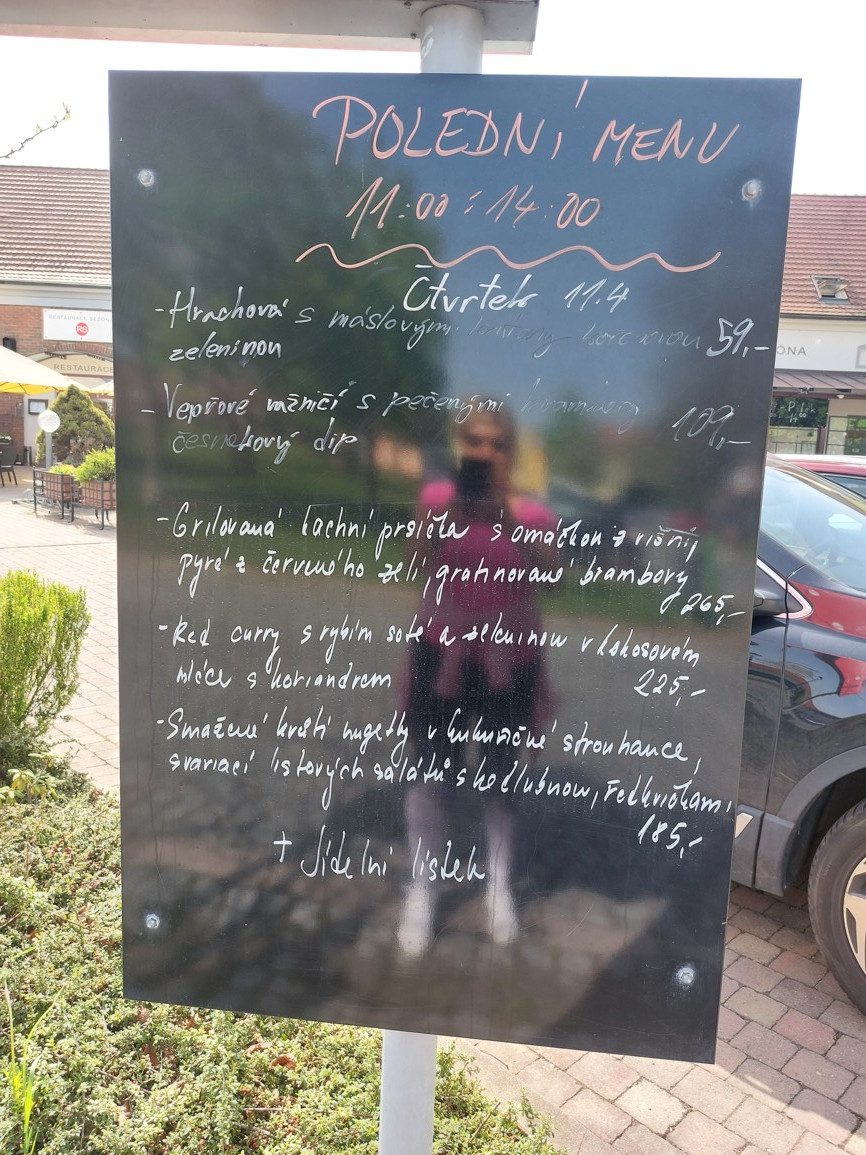 POLEDNÍ MENU
11:00 : 14:00
Čtvrtek 11.4
- Hrachová s máslovými krutony kořenovou 59,-
zeleninou
- Vepřové ražničí s pečenými brambory 109,-
česnekový dip
- Grilovaná kachní prsíčka s omáčkou z višní,
pyré z červeného zelí, gratinované brambory
265,-
- Red curry s rybím soté a zeleninou v kokosovém
mléce s koriandrem 225,-
- Smažené krůtí nugetky v kukuřičné strouhance,
s variací listových salátů s kedlubnou, ředkvičkami
185,-
+ Jídelní lístek
RESTAURACE SEZONA
RS
RESTAURACE
ÓNA